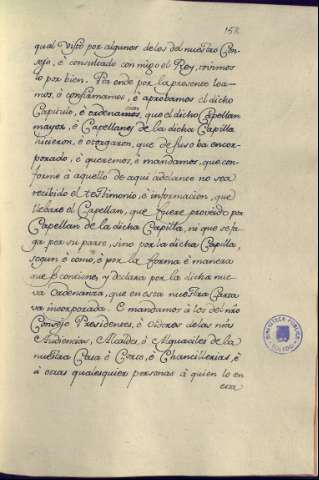 158
qual visto por algunos de los del nuestro Con-
sejo, è consultado con migo el Rey, tovimos
lo por bien. Por ende por la presente loa-
mos, è confirmamos, è aprobamos el dicho
Capitulo, è ordenamos, que el dicho Capellan
mayor, è Capellanes de la dicha Capilla
hicieron, è otorgaron, que de suso ba encor-
porado, è queremos, è mandamos, que con-
forme à aquello de aqui adelante no sea
recibido el testimonio, è informacion, que
llebare el Capellan, que fuere proveido por
Capellan de la dicha Capilla, ni que se fa-
ga por su parte, sino por la dicha Capilla,
segun è como, è por la forma è manera
que se contiene, y declara por la dicha nue-
va Ordenanza, que en esta nuestra Carta
va incorporada. E mandamos à los del nrõ
Consejo Presidentes, è oidores de las nrãs
Audiencias, Alcaldes, è Alguaciles de la
nuestra Casa è Corte, è Chancillerias, è
à otras qualesquier personas à quien lo en
esta
BIBLIOTECA PUBLICA
TOLEDO